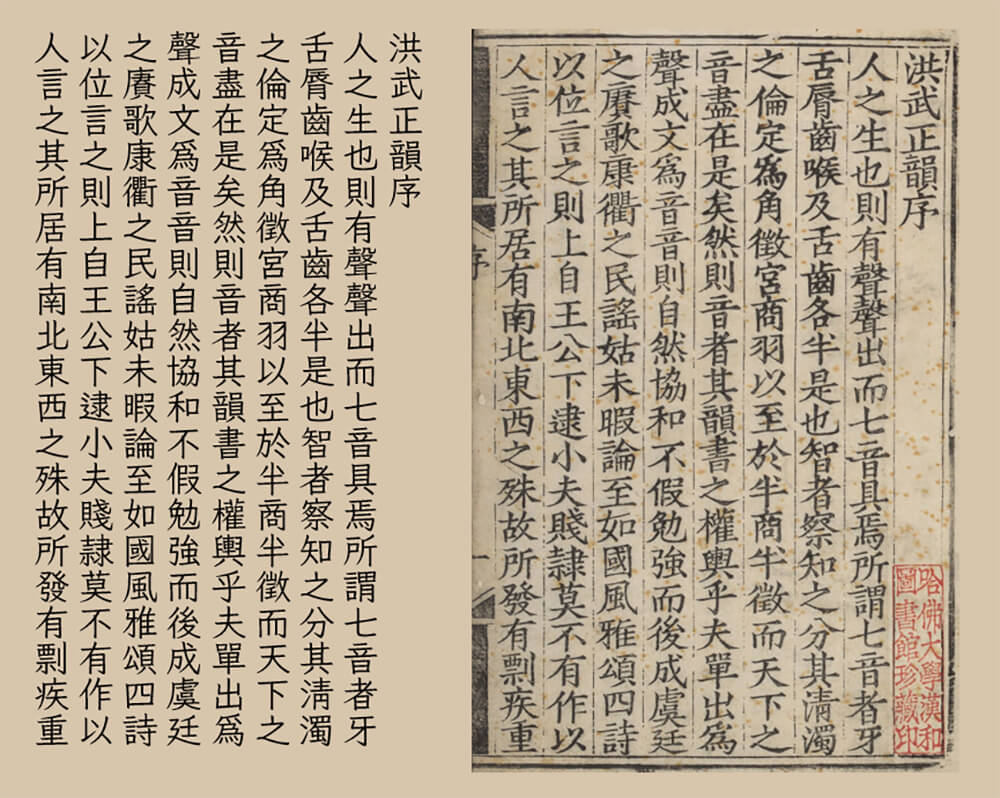 哈佛大學漢和
圖書館珍藏印
洪武正韻序
人之生也則有聲聲出而七音具焉所謂七音者牙
舌脣齒喉及舌齒各半是也智者察知之分其清濁
之倫定爲角徵宮商羽以至於半商半徵而天下之
音盡在是矣然則音者其韻書之權輿乎夫單出爲
聲成文爲音音則自然協和不假勉強而後成虞廷
之賡歌康衢之民謠姑未暇論至如國風雅頌四詩
以位言之則上自王公下逮小夫賤隷莫不有作以
人言之其所居有南北東西之殊故所發有剽疾重
序
一
洪武正韻序
人之生也則有聲聲出而七音具焉所謂七音者牙
舌脣齒喉及舌齒各半是也智者察知之分其清濁
之倫定爲角徵宮商羽以至於半商半徵而天下之
音盡在是矣然則音者其韻書之權輿乎夫單出爲
聲成文爲音音則自然協和不假勉強而後成虞廷
之賡歌康衢之民謠姑未暇論至如國風雅頌四詩
以位言之則上自王公下逮小夫賤隷莫不有作以
人言之其所居有南北東西之殊故所發有剽疾重